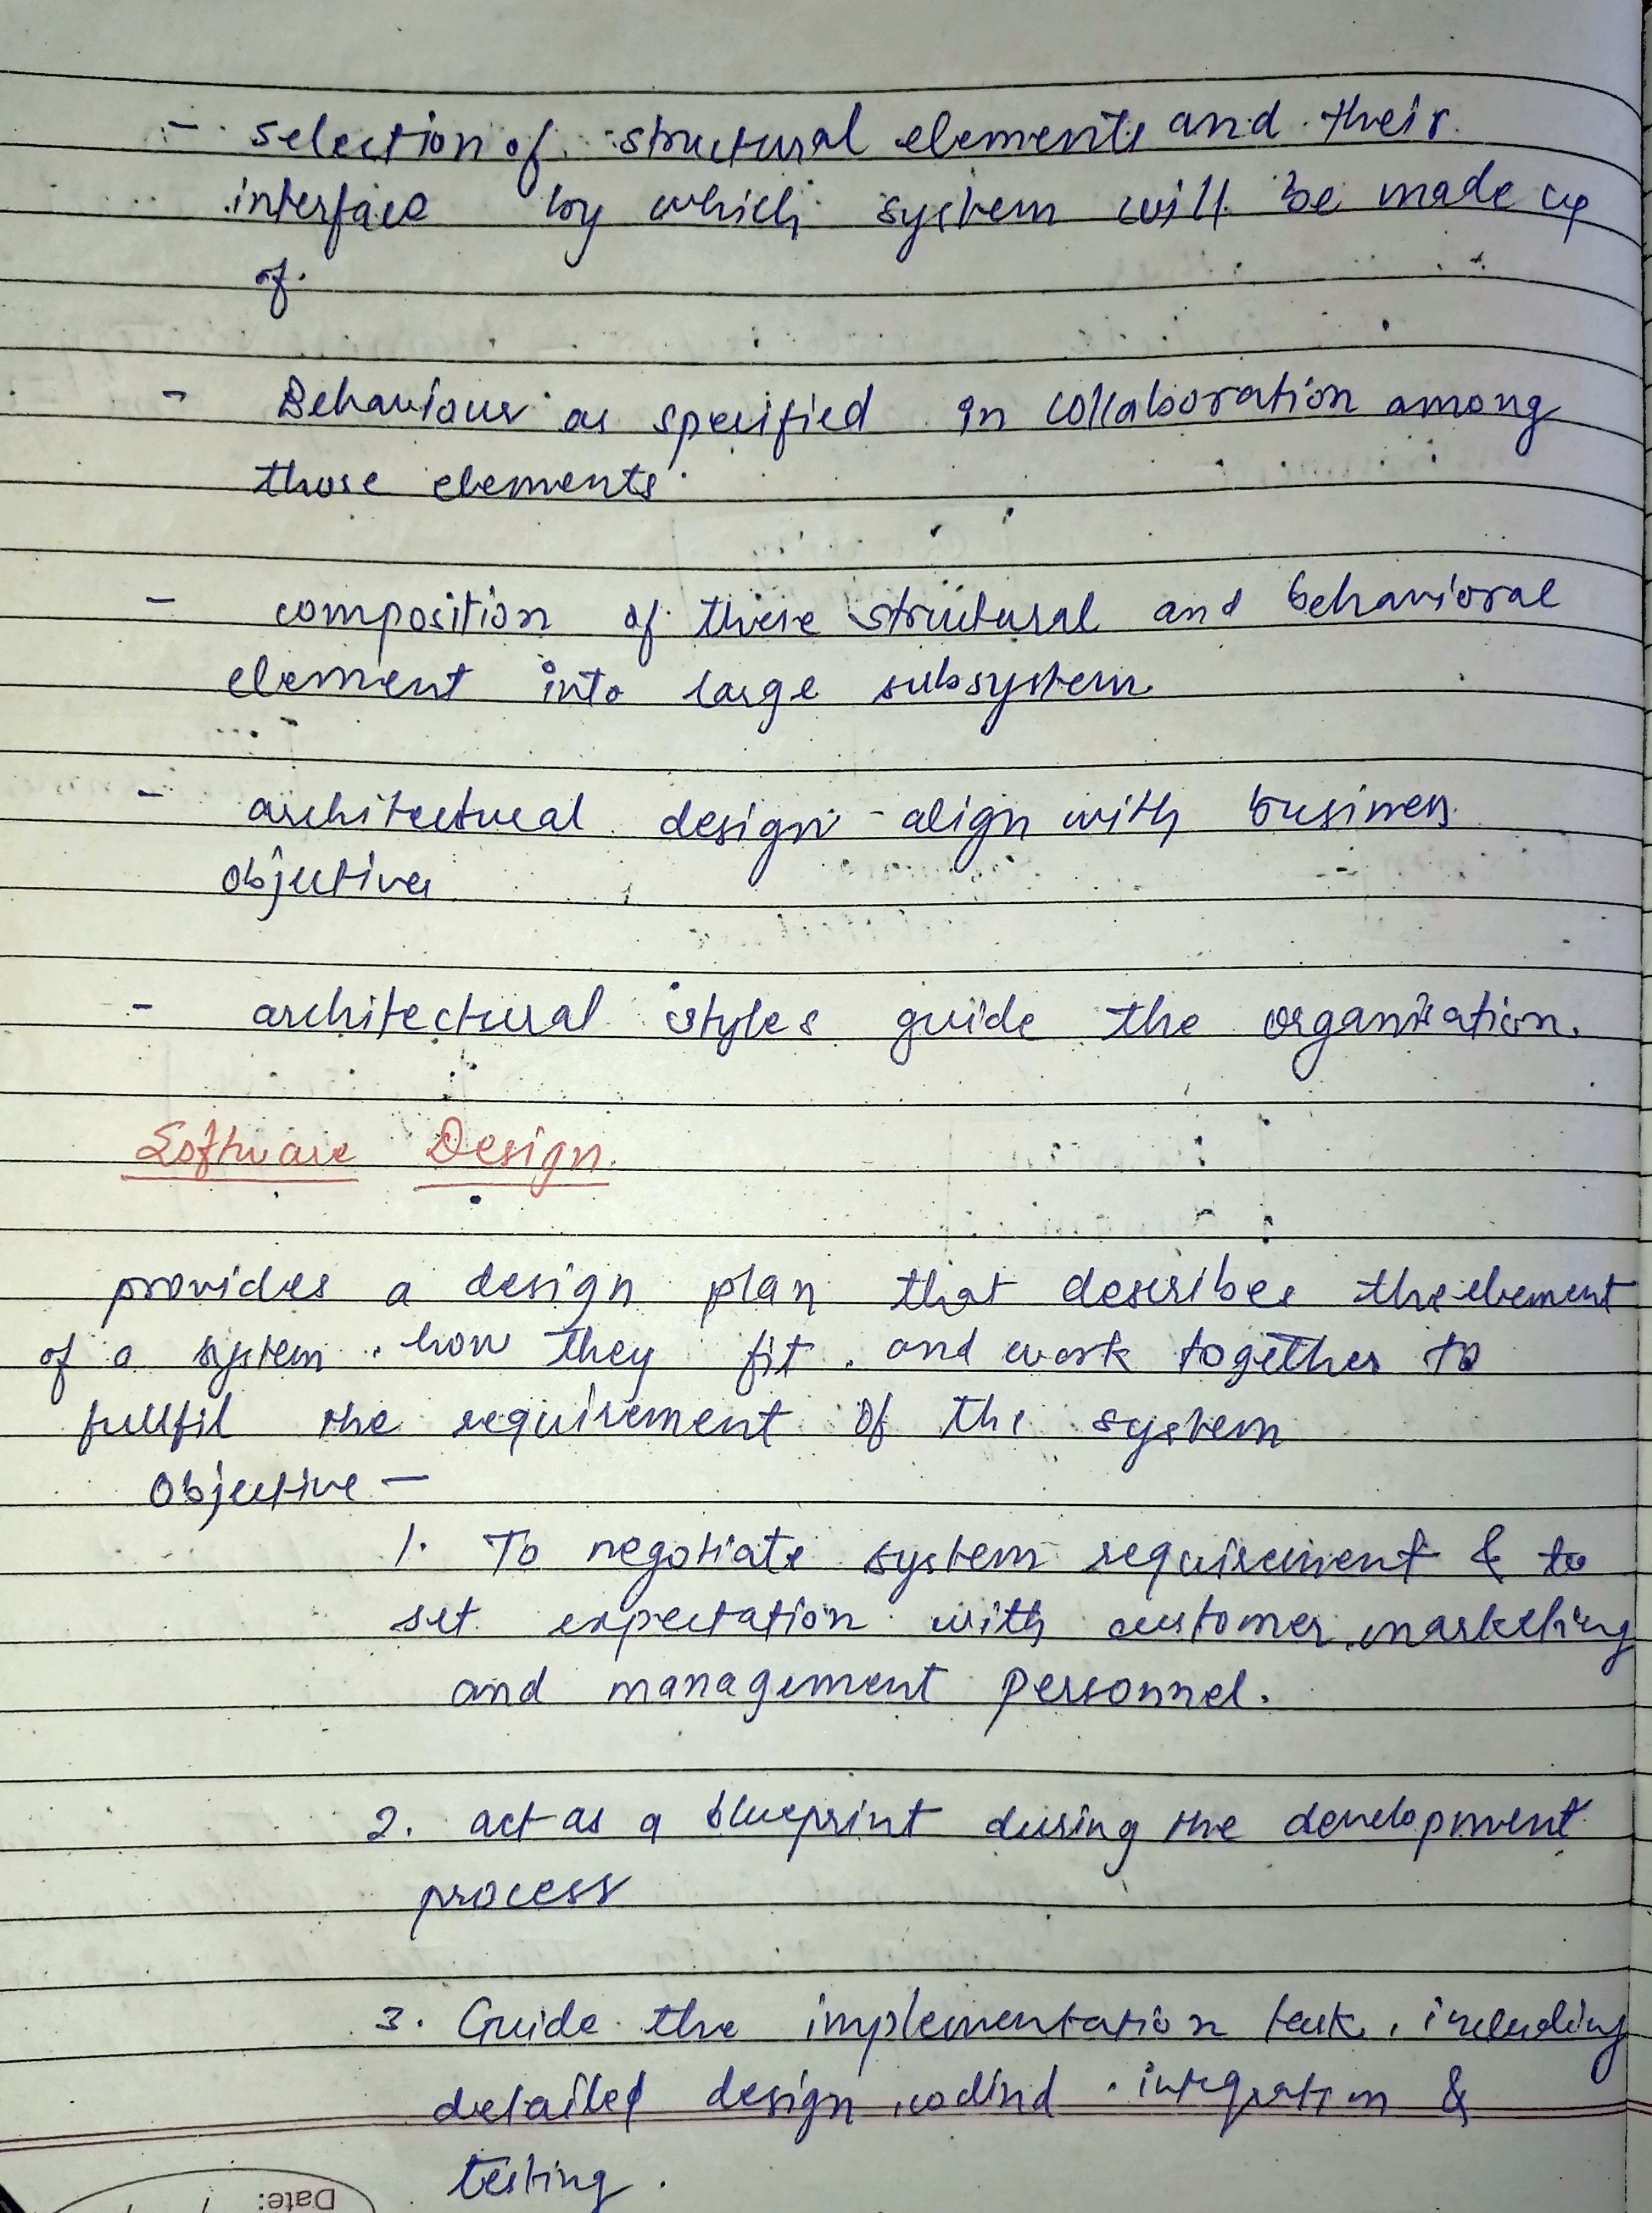 - selection of structural elements and their
interface by which system will be made up
of.
- Behaviour as specified in collaboration among
those elements
- composition of these structural and behavioral
element into large subsystem
- architectural design align with business
objectives
- architectural styles guide the organisation.
Software Design
provides a design plan that describes the element
of a system, how they fit, and work together to
fullfil the requirement of the system
Objective -
1. To negotiate system requirement & to
set expectation with customer, marketing
and management personnel.
2. act as a blueprint during the development
process
3. Guide the implementation task, including
detailed design, codind, integration &
testing.
Date: